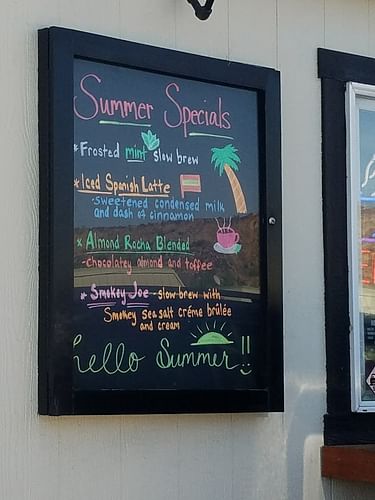 Summer Specials
*Frosted mint slow brew
*Iced Spanish Latte
-sweetened condensed milk
and dash of cinnamon
*Almond Rocha Blended
-chocolatey almond and toffee
*Smokey Joe-slow brew with
Smokey sea salt créme brûlée
and cream
hello Summer!!